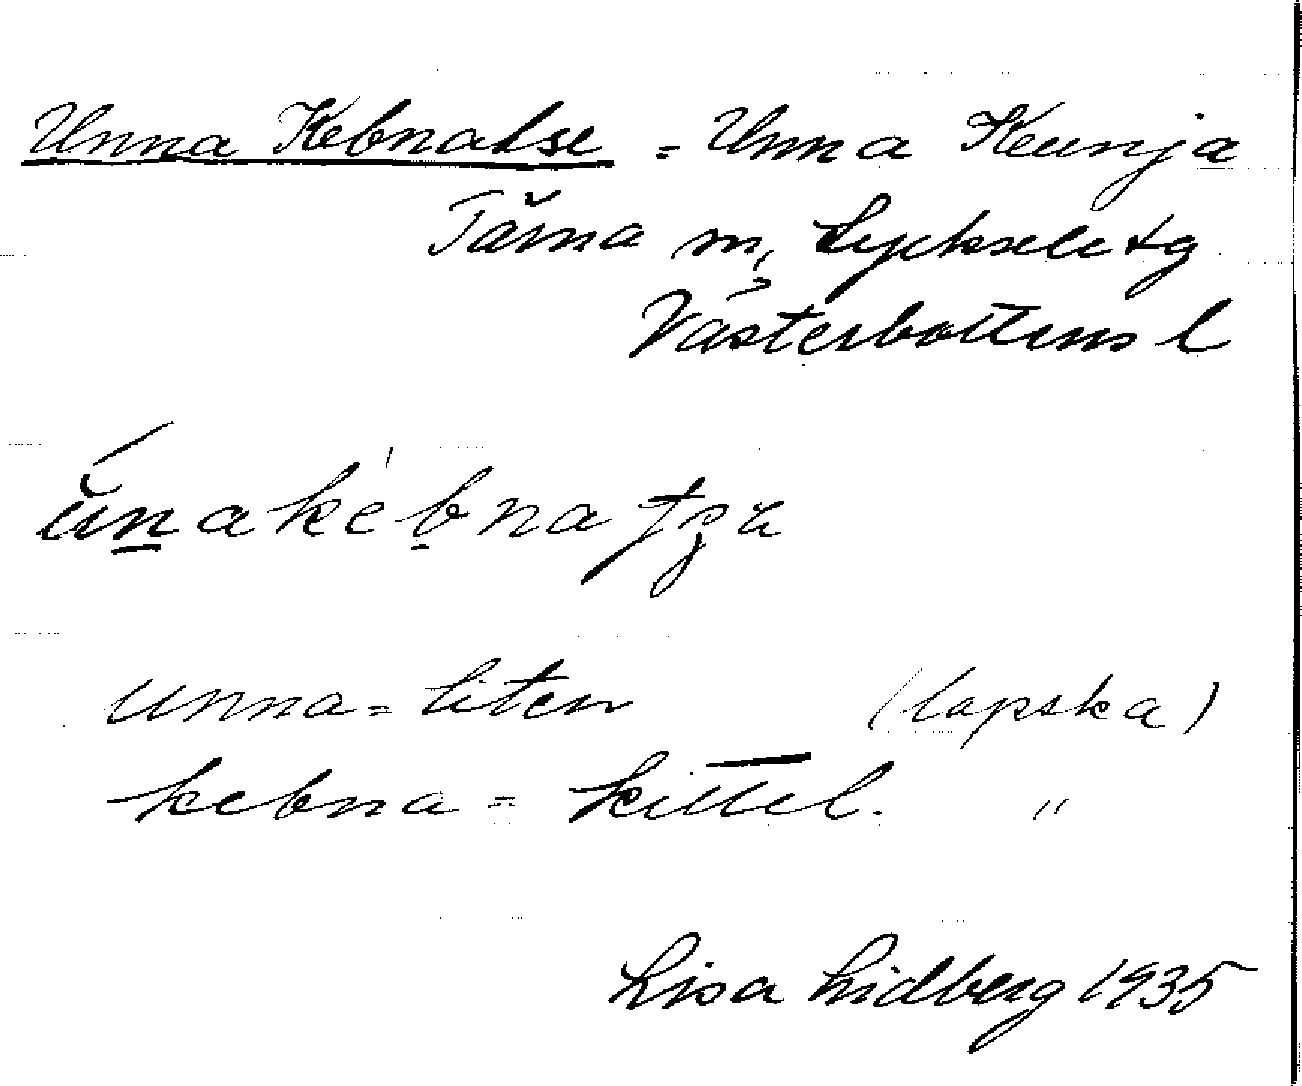 Unna Kebnatse = Unna Keunja
Tärna sn, Lycksele tg
Västerbottens l
únakèbnatʒa
unna = liten (lapska)
kebna = kittel. "
Lisa Lidberg 1935